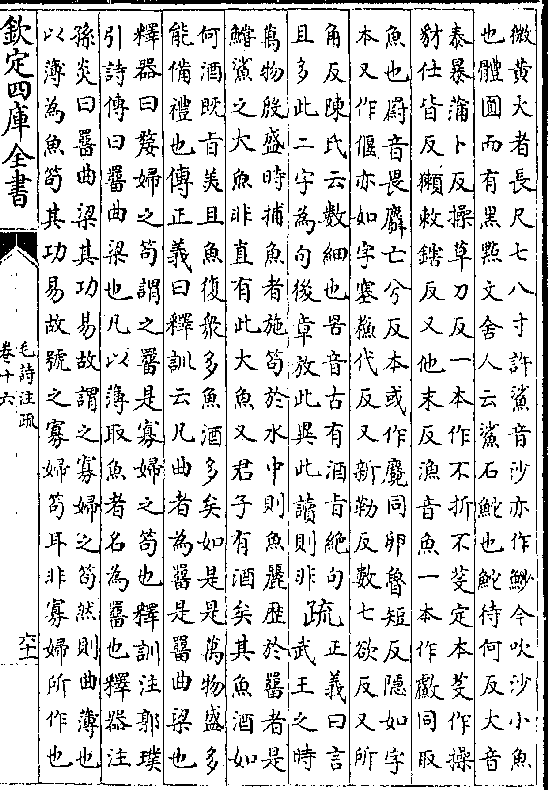 微黃大者長尺七八寸許鯊音沙亦作魦今吹沙小魚
也體圓而有黑㸃文舍人云鯊石鮀也鮀待何反大音
泰暴蒲卜反操草刀反一本作不折不芟定本芟作操
豺仕皆反獺敕鎋反又他末反漁音魚一本作䱷同取
魚也罻音畏麛亡兮反本或作麑同卵魯短反隱如字
本又作偃亦如字塞蘓代反又新勒反數七欲反又所
角反陳氏云數細也罟音古有酒㫖絶句
且多此二字為句後章放此異此讀則非
疏
正義曰言
武王之時
萬物殷盛時捕魚者施笱於水中則魚麗歴於罶者是
鱨鯊之大魚非直有此大魚又君子有酒矣其魚酒如
何酒既㫖美且魚復衆多魚酒多矣如是是萬物盛多
能備禮也傳正義曰釋訓云凡曲者為罶是罶曲梁也
釋器曰嫠婦之笱謂之罶是寡婦之笱也釋訓注郭璞
引詩傳曰罶曲梁也凡以薄取魚者名為罶也釋器注
孫炎曰罶曲梁其功易故謂之寡婦之笱然則曲薄也
以薄為魚笱其功易故號之寡婦笱耳非寡婦所作也
欽定四庫全書
毛詩注疏
卷十六
六十一